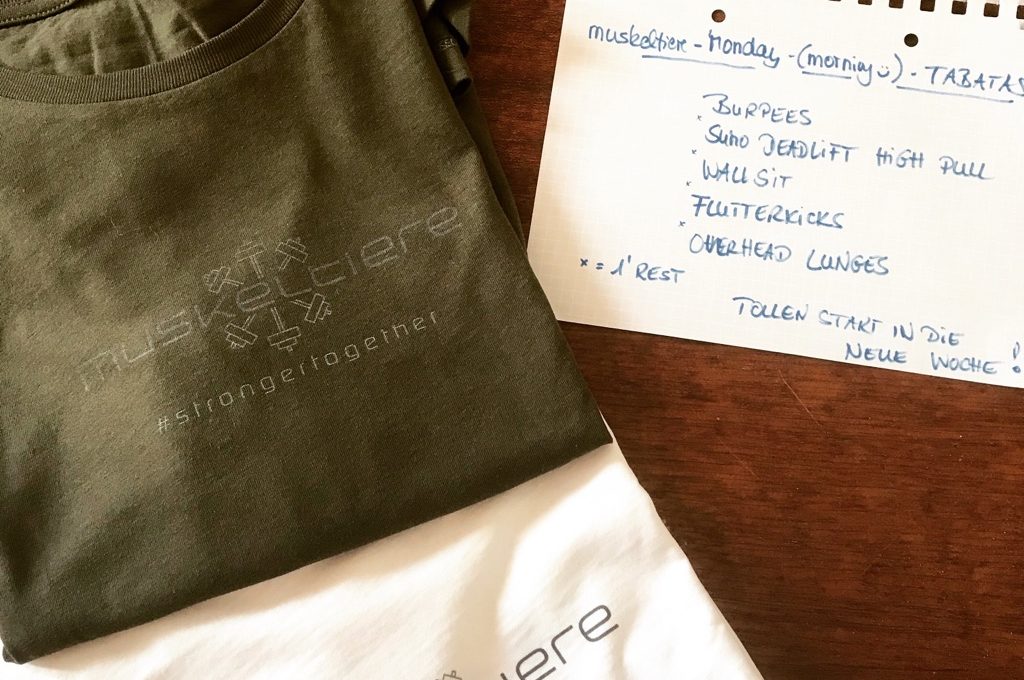 muskeltiere
#strongertogether
iere
muskeltiere - Monday - (morning ;) ) - TABATAS
BURPEES
x
SUMO DEADLIFT HIGH PULL
x
WALL SIT
x
FLUTTERKICKS
x
OVERHEAD LUNGES
x = 1' REST
TOLLEN START IN DIE
NEUE WOCHE !